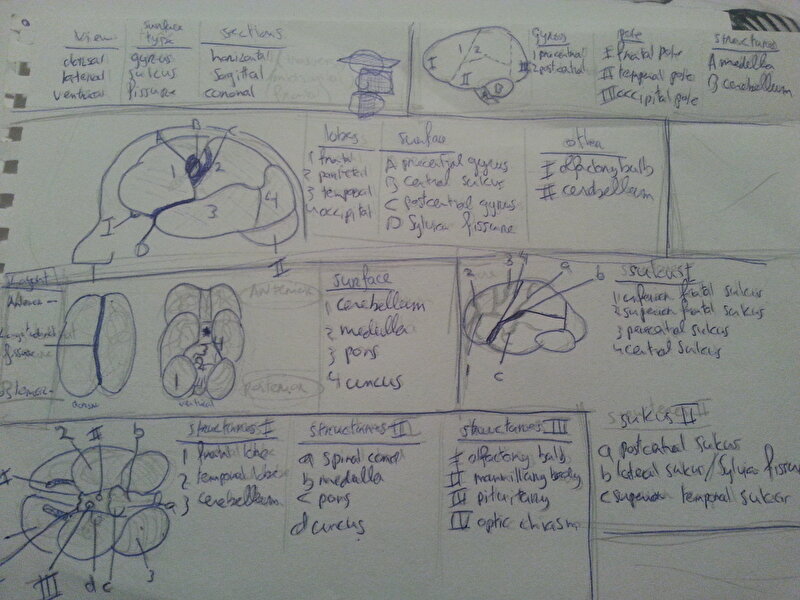 View
surface type
sections
dorsal
gyrus
horizontal
lateral
sulcus
Sagittal
ventral
fissure
coronal
1
2
I
II
III
A
B
Gyrus
1 precentral
2 postcentral
pole
I frontal pole
II temporal pole
III occipital pole
structures
A medulla
B cerebellum
A
B
C
1
2
3
4
I
D
II
lobes
1 frontal
2 parietal
3 temporal
4 occipital
surface
A precentral gyrus
B central sulcus
C postcentral gyrus
D Sylvian fissure
other
I olfactory bulb
II cerebellum
Anterior
fissure
dorsal
ventral
1
4
Anterior
posterior
surface
1 cerebellum
2 medulla
3 pons
4 uncus
2
3
4
a
b
1
c
ssulcus I
1 inferior frontal sulcus
2 superior frontal sulcus
3 precentral sulcus
4 central sulcus
2
II
b
I
a
III
d
c
3
structures I
1 frontal lobe
2 temporal lobe
3 cerebellum
structures II
a spinal cord
b medulla
c pons
d uncus
structures III
I olfactory bulb
II mammillary body
III pituitary
IV optic chiasm
ssulcus II
a postcentral sulcus
b lateral sulcus/Sylvian fissure
c superior temporal sulcus